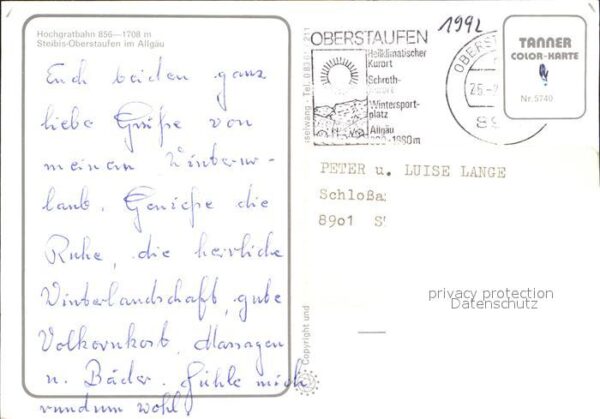 Hochgratbahn 856—1708 m
Steibis-Oberstaufen im Allgäu
Euch beiden ganz
liebe Grüße von
meinem Winterur-
laub. Genieße die
Ruhe, die herrliche
Winterlandschaft, gute
Vollkornkost, Massagen
u. Bäder. Fühle mich
rundum wohl!
1992
OBERSTAUFEN
Heilklimatischer
Kurort
Schroth-
kurort
Wintersport-
platz
Allgäu
OBERST
TANNER
COLOR-KARTE
Nr. 5740
PETER u. LUISE LANGE
Schloßa
8901 S
privacy protection
Datenschutz
Copyright und